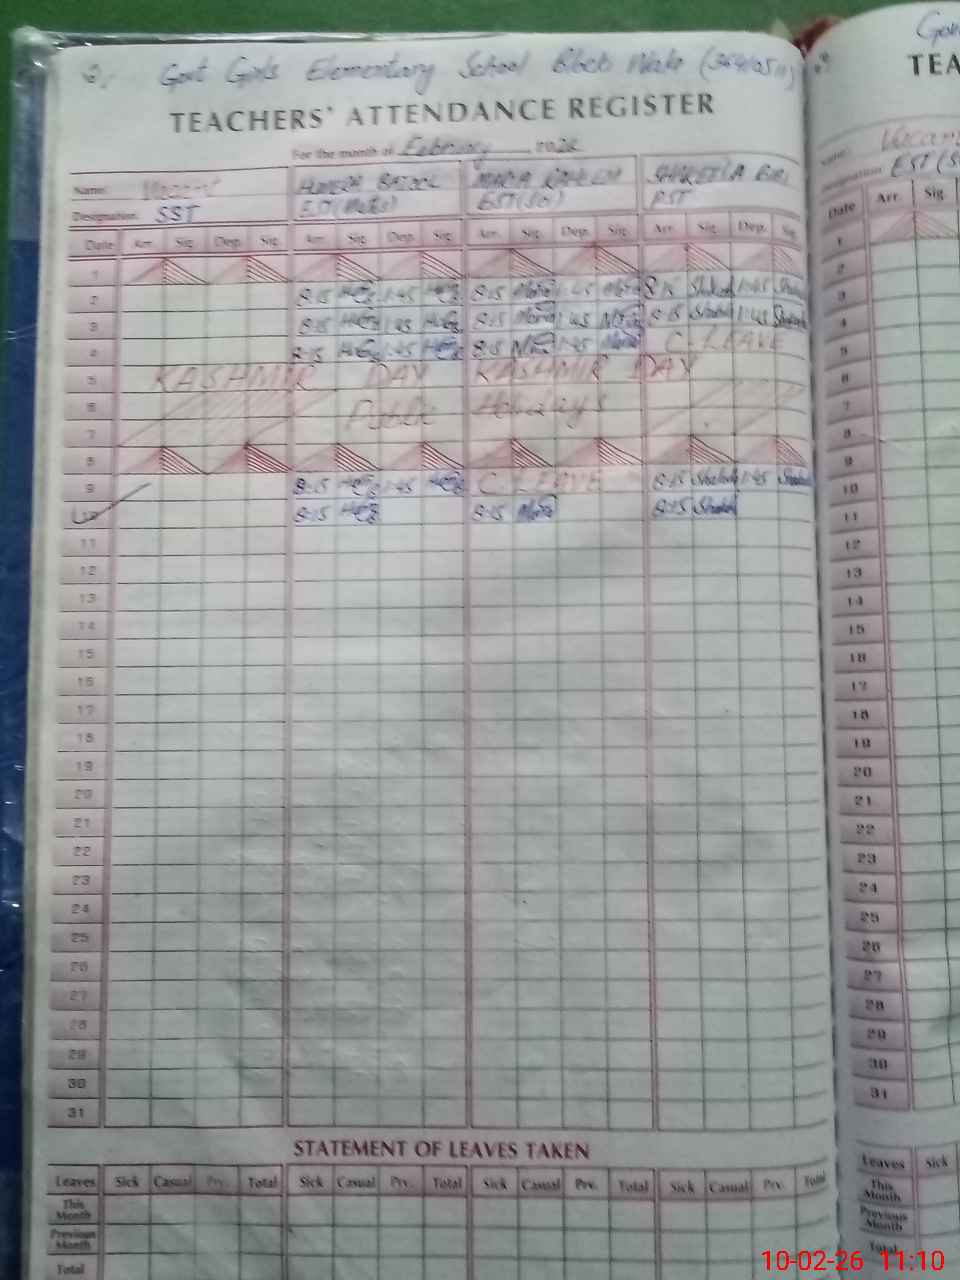 Govt Girls Elementary School
TEACHERS' ATTENDANCE REGISTER
For the month of February 2026
Name: Vacant HUMERA BATOOL MARIA RAHEEM SHAKEELA BIBI
Designation. SST EST(Math) EST(Sci) PST
Date Arr. Sig. Dep. Sig. Arr. Sig. Dep. Sig. Arr. Sig. Dep. Sig. Arr. Sig. Dep. Sig.
1
2 8:15 1:45 8:15 Maria 1:45 Maria 8:15 Shakeela 1:45 Shakeela
3 8:15 1:45 8:15 Maria 1:45 Maria 8:15 Shakeela 1:45 Shakeela
4 8:15 1:45 8:15 Maria 1:45 Maria C. LEAVE
5 KASHMIR DAY KASHMIR DAY
6 Public Holidays
7
8
9 8:15 1:45 C. LEAVE 8:15 Shakeela 1:45 Shakeela
10 8:15 8:15 Maria 8:15 Shakeela
11
12
13
14
15
16
17
18
19
20
21
22
23
24
25
26
27
28
29
30
31
STATEMENT OF LEAVES TAKEN
Leaves Sick Casual Prv. Total Sick Casual Prv. Total Sick Casual Prv. Total Sick Casual Prv. Total
This Month
Previous Month
Total
TEA
Vacant
Name:
Designation EST
Date Arr. Sig.
1
2
3
4
5
6
7
8
9
10
11
12
13
14
15
16
17
18
19
20
21
22
23
24
25
26
27
28
29
30
31
Leaves Sick
This Month
Previous Month
Total
10-02-26 11:10